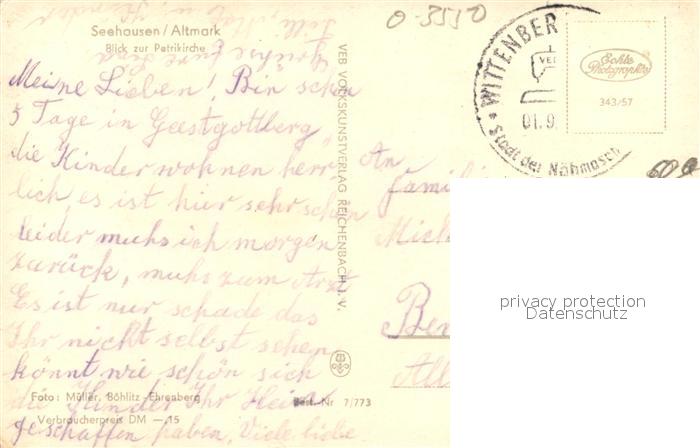 Seehausen / Altmark
Blick zur Petrikirche
Meine Lieben! Bin schon
5 Tage in Geestgottberg,
die Kinder wohnen herr
lich, es ist hier sehr schön
leider muhs ich morgen
zurück, muhs zum Arzt
Es ist nur schade das
Ihr nicht selbst sehen
könnt wie schön sich
die Kinder Ihr Heim
geschaffen haben, Viele liebe
Foto: Müller, Böhlitz-Ehrenberg
Best.-Nr 7/773
Verbraucherpreis DM —,15
VEB VOLKSKUNSTVERLAG REICHENBACH I. V.
0-3550
WITTENBER
01.9
Stadt der Nähmasch
Echte
Photographie
343/57
An
Famili
Mich
Ber
privacy protection
Datenschutz